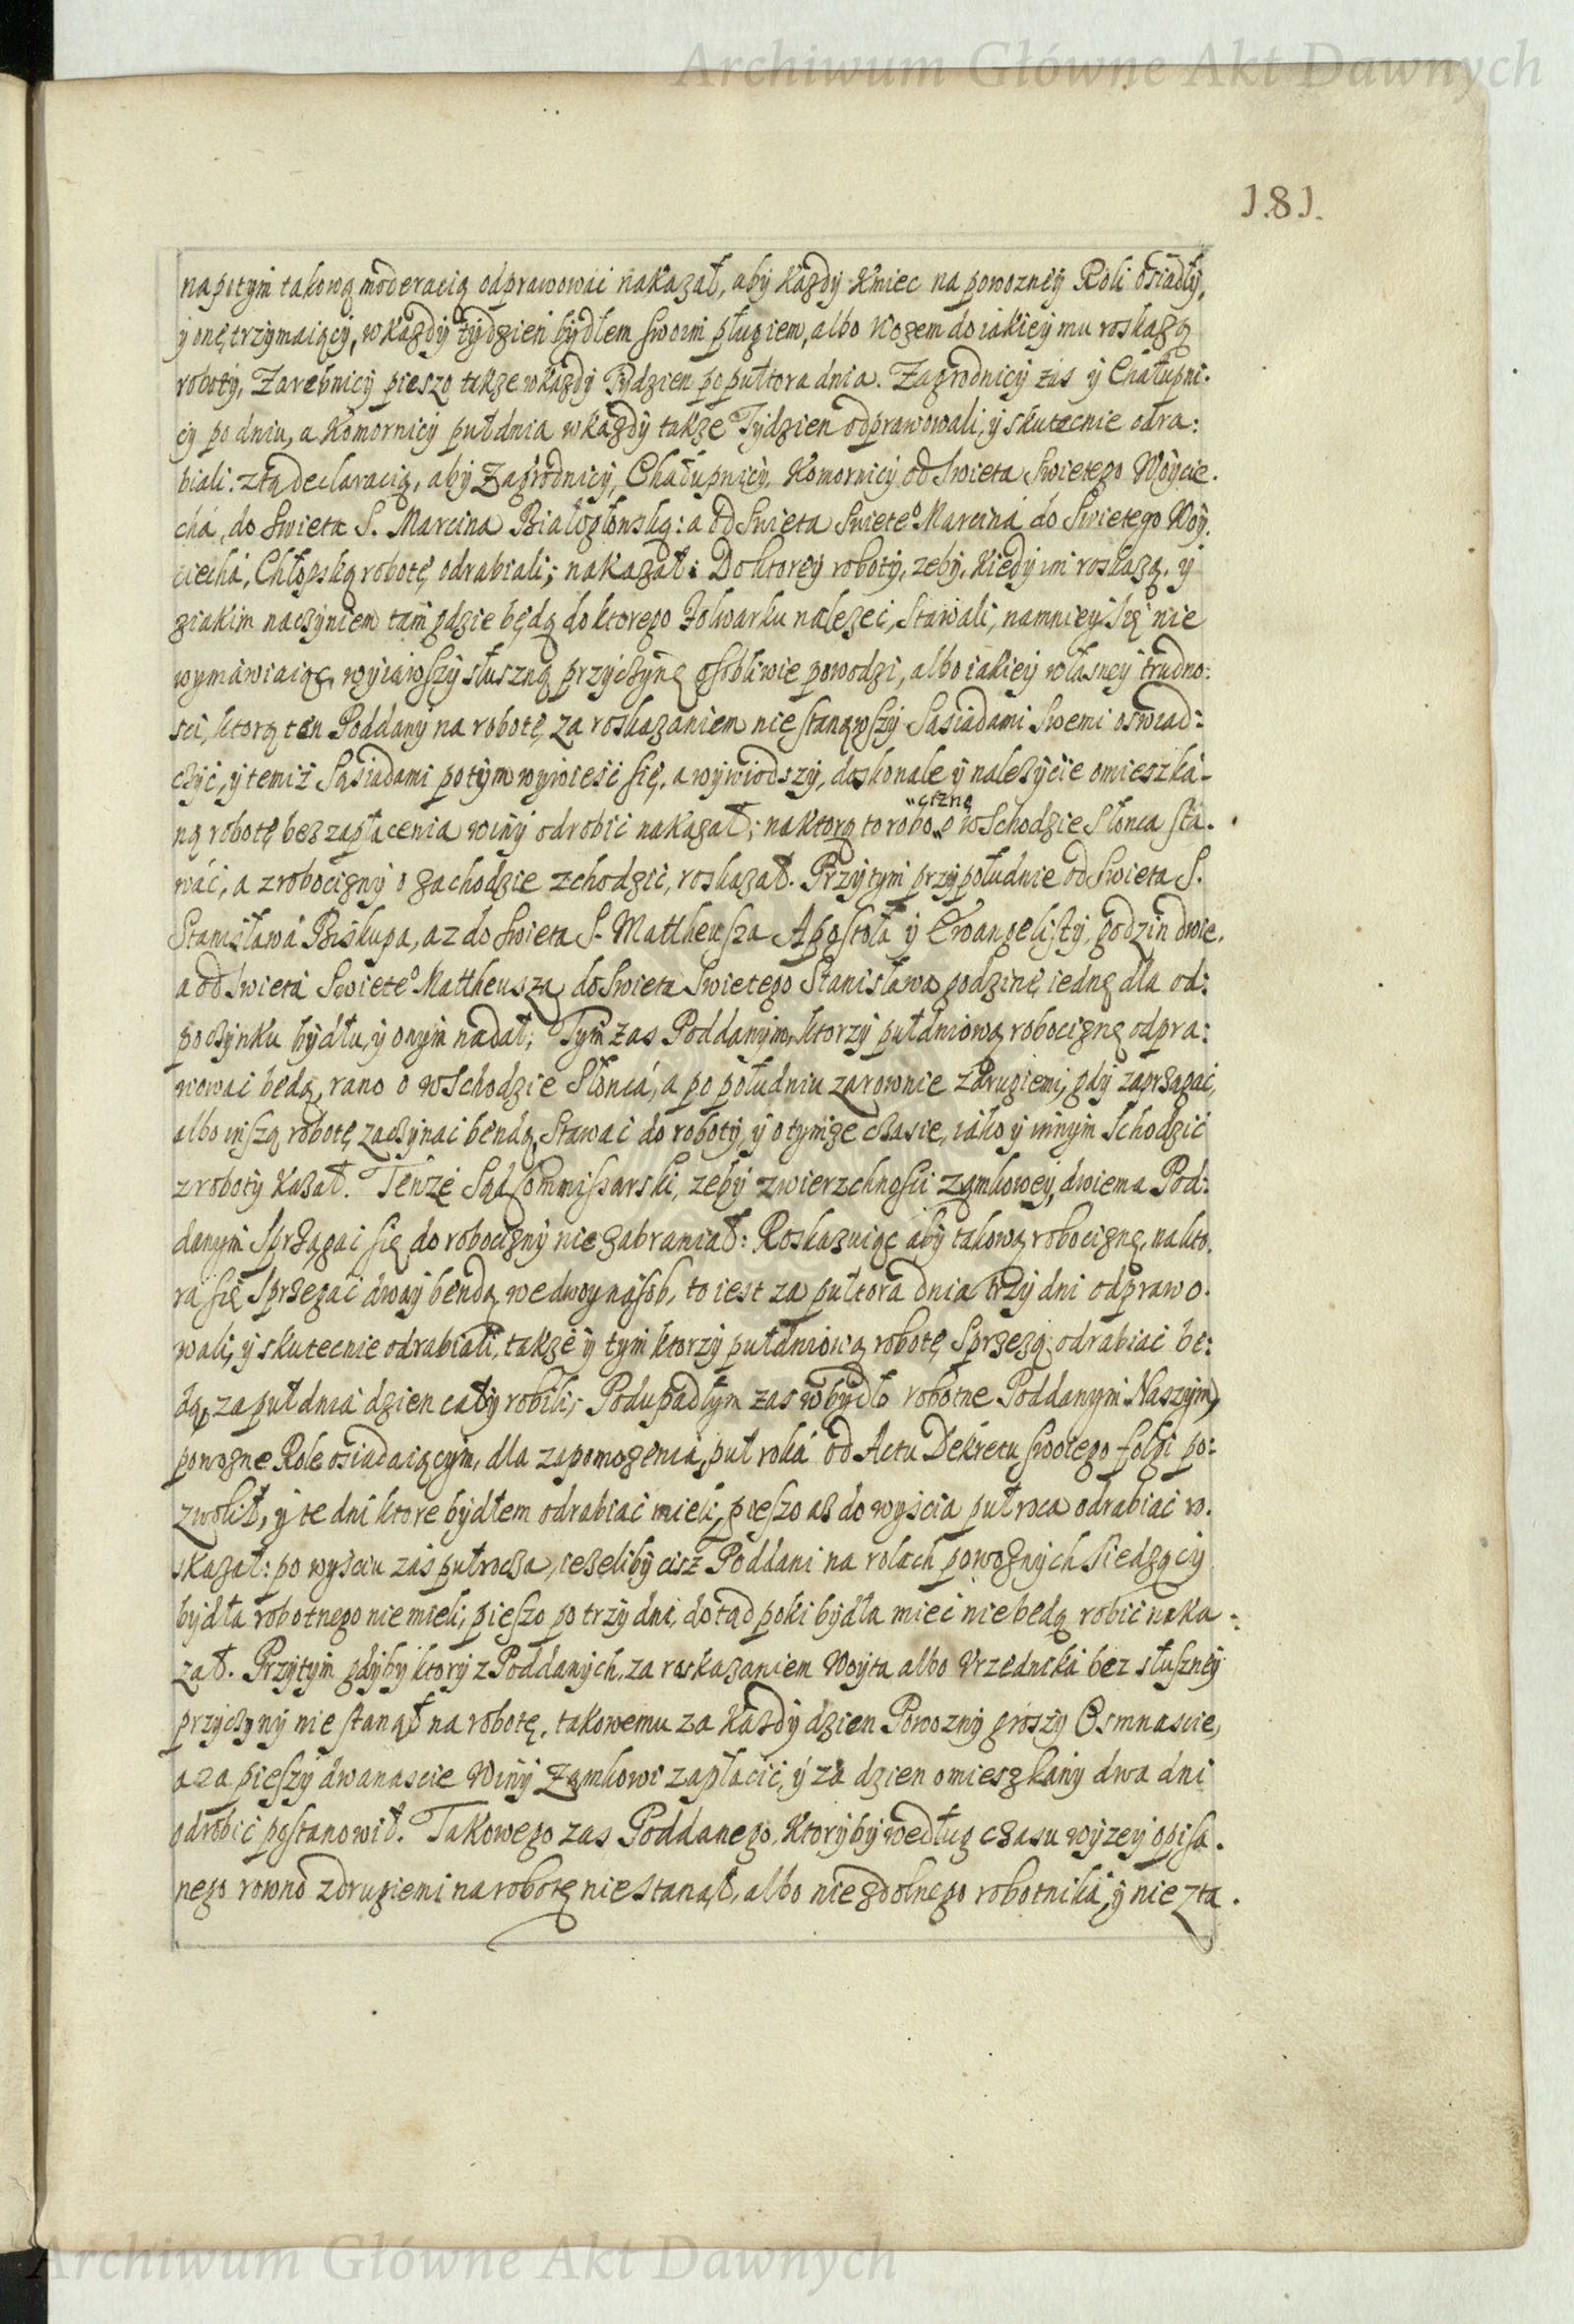 Archiwum Główne Akt Dawnych
181.
napotym takową moderacią odprawowac nakazał, aby kazdy Kmiec na powozney Roli osiadły,
y onę trzymaiący, w kazdy tydzien bydłem swoim pługiem, albo Wozem do iakiey mu roskazą
roboty, Zarebnicy pieszo takze w kazdy Tydzien po pułtora dnia. Zagrodnicy zas y Chałupni:
cy po dniu, a Komornicy pułdnia w kazdy takze Tydzien odprawowali, y skutecnie odra:
biali: z tą declaracią, aby Zagrodnicy, Chałupnicy, Komornicy od Swieta Swietego Woycie.
chá, do Swieta S. Marcina Białogłowską: a od Swieta Swiete° Marcina do Swietego Woy.
ciechá, Chłopską robotę odrabiali; nakazał: Do ktorey roboty, zeby, kiedy im roskazą, y
z iakim naczyniem tam gdzie będą do ktorego Folwarku nalezec, stawali, namniey się nie
wymawiaiąc, wyiąwszy słuszną przyczynę osobliwie powodzi, albo iakiey własney trudno:
sci, ktorą ten Poddany na robotę za roskazaniem nie stanąwszy Sąsiadami swemi oswiad:
czyć, y temiż Sąsiadami potym wywiesć się, a wywiodszy, doskonale y nalezycie omieszká-
ną robotę bez zapłacenia winy odrobić nakazał; na ktorą to robo„ciznę o wschodzie Słonca sta.
wać, a z robocizny o zachodzie zchodzić, roskazał. Przytym przypołudnie od Swieta S.
Stanisława Biskupa, az do Swieta S. Mattheusza Apostoła y Ewangelisty, godzin dwie,
a od Swieta Swiete° Mattheusza do Swieta Swietego Stanisława godzinę iednę dla od:
poczynku bydłu, y onym nadał; Tym zas Poddanym, ktorzy pułdniową robociznę odpra:
wowac bedą, rano o wschodzie Słoncá, a po południu zarownie z drugiemi, gdy zaprzągać,
albo inszą robotę zaczynac bendą, stawać do roboty, y o tymze czasie, iako y innym schodzić
z roboty kazał. Tenże Sąd Commissarski, zeby zwierzchnosci zamkowey, dwiema Pod:
danym sprzągac się do robocizny nie zabraniał: Roskazuiąc aby takową robociznę, na kto.
rą się sprzegać dway bendą, we dwoynąsob, to iest za pułtora dnia trzy dni odprawo.
wali, y skutecnie odrabiali, takze y tym ktorzy pułdniową robotę sprzezą odrabiac be:
dą, za pułdnia dzien cały robili; Podupadłym zas w bydło robotne Poddanym Naszym,
powozne Role osiadaiącym, dla zapomozenia, puł roká od Actu Dekretu swoiego folgi po:
zwolił, y te dni ktore bydłem odrabiać mieli, pieszo az do wyścia puł roca odrabiać ro.
skazał: po wyściu zás pułrocza, iezeliby cisz Poddani na rolach powoznych siedzący
bydła robotnego nie mieli, pieszo po trzy dni, dotąd poki bydła mieć nie bedą robić naka:
zał. Przytym gdyby ktory z Poddanych, za roskazaniem Woyta albo Vrzednika bez słuszney
przyczyny nie stanął na robotę, takowemu za kazdy dzien Powozny groszy Osmnascie,
a za pieszy dwanascie Winy Zamkowi zapłacić, y za dzien omieszkany dwa dni
odrobić postanowił. Takowego zas Poddanego, ktoryby według czasu wyzey opisa.
nego rowno z drugiemi na robotę nie stanął, albo niezdolnego robotnika, y nie z ta.
Archiwum Główne Akt Dawnych